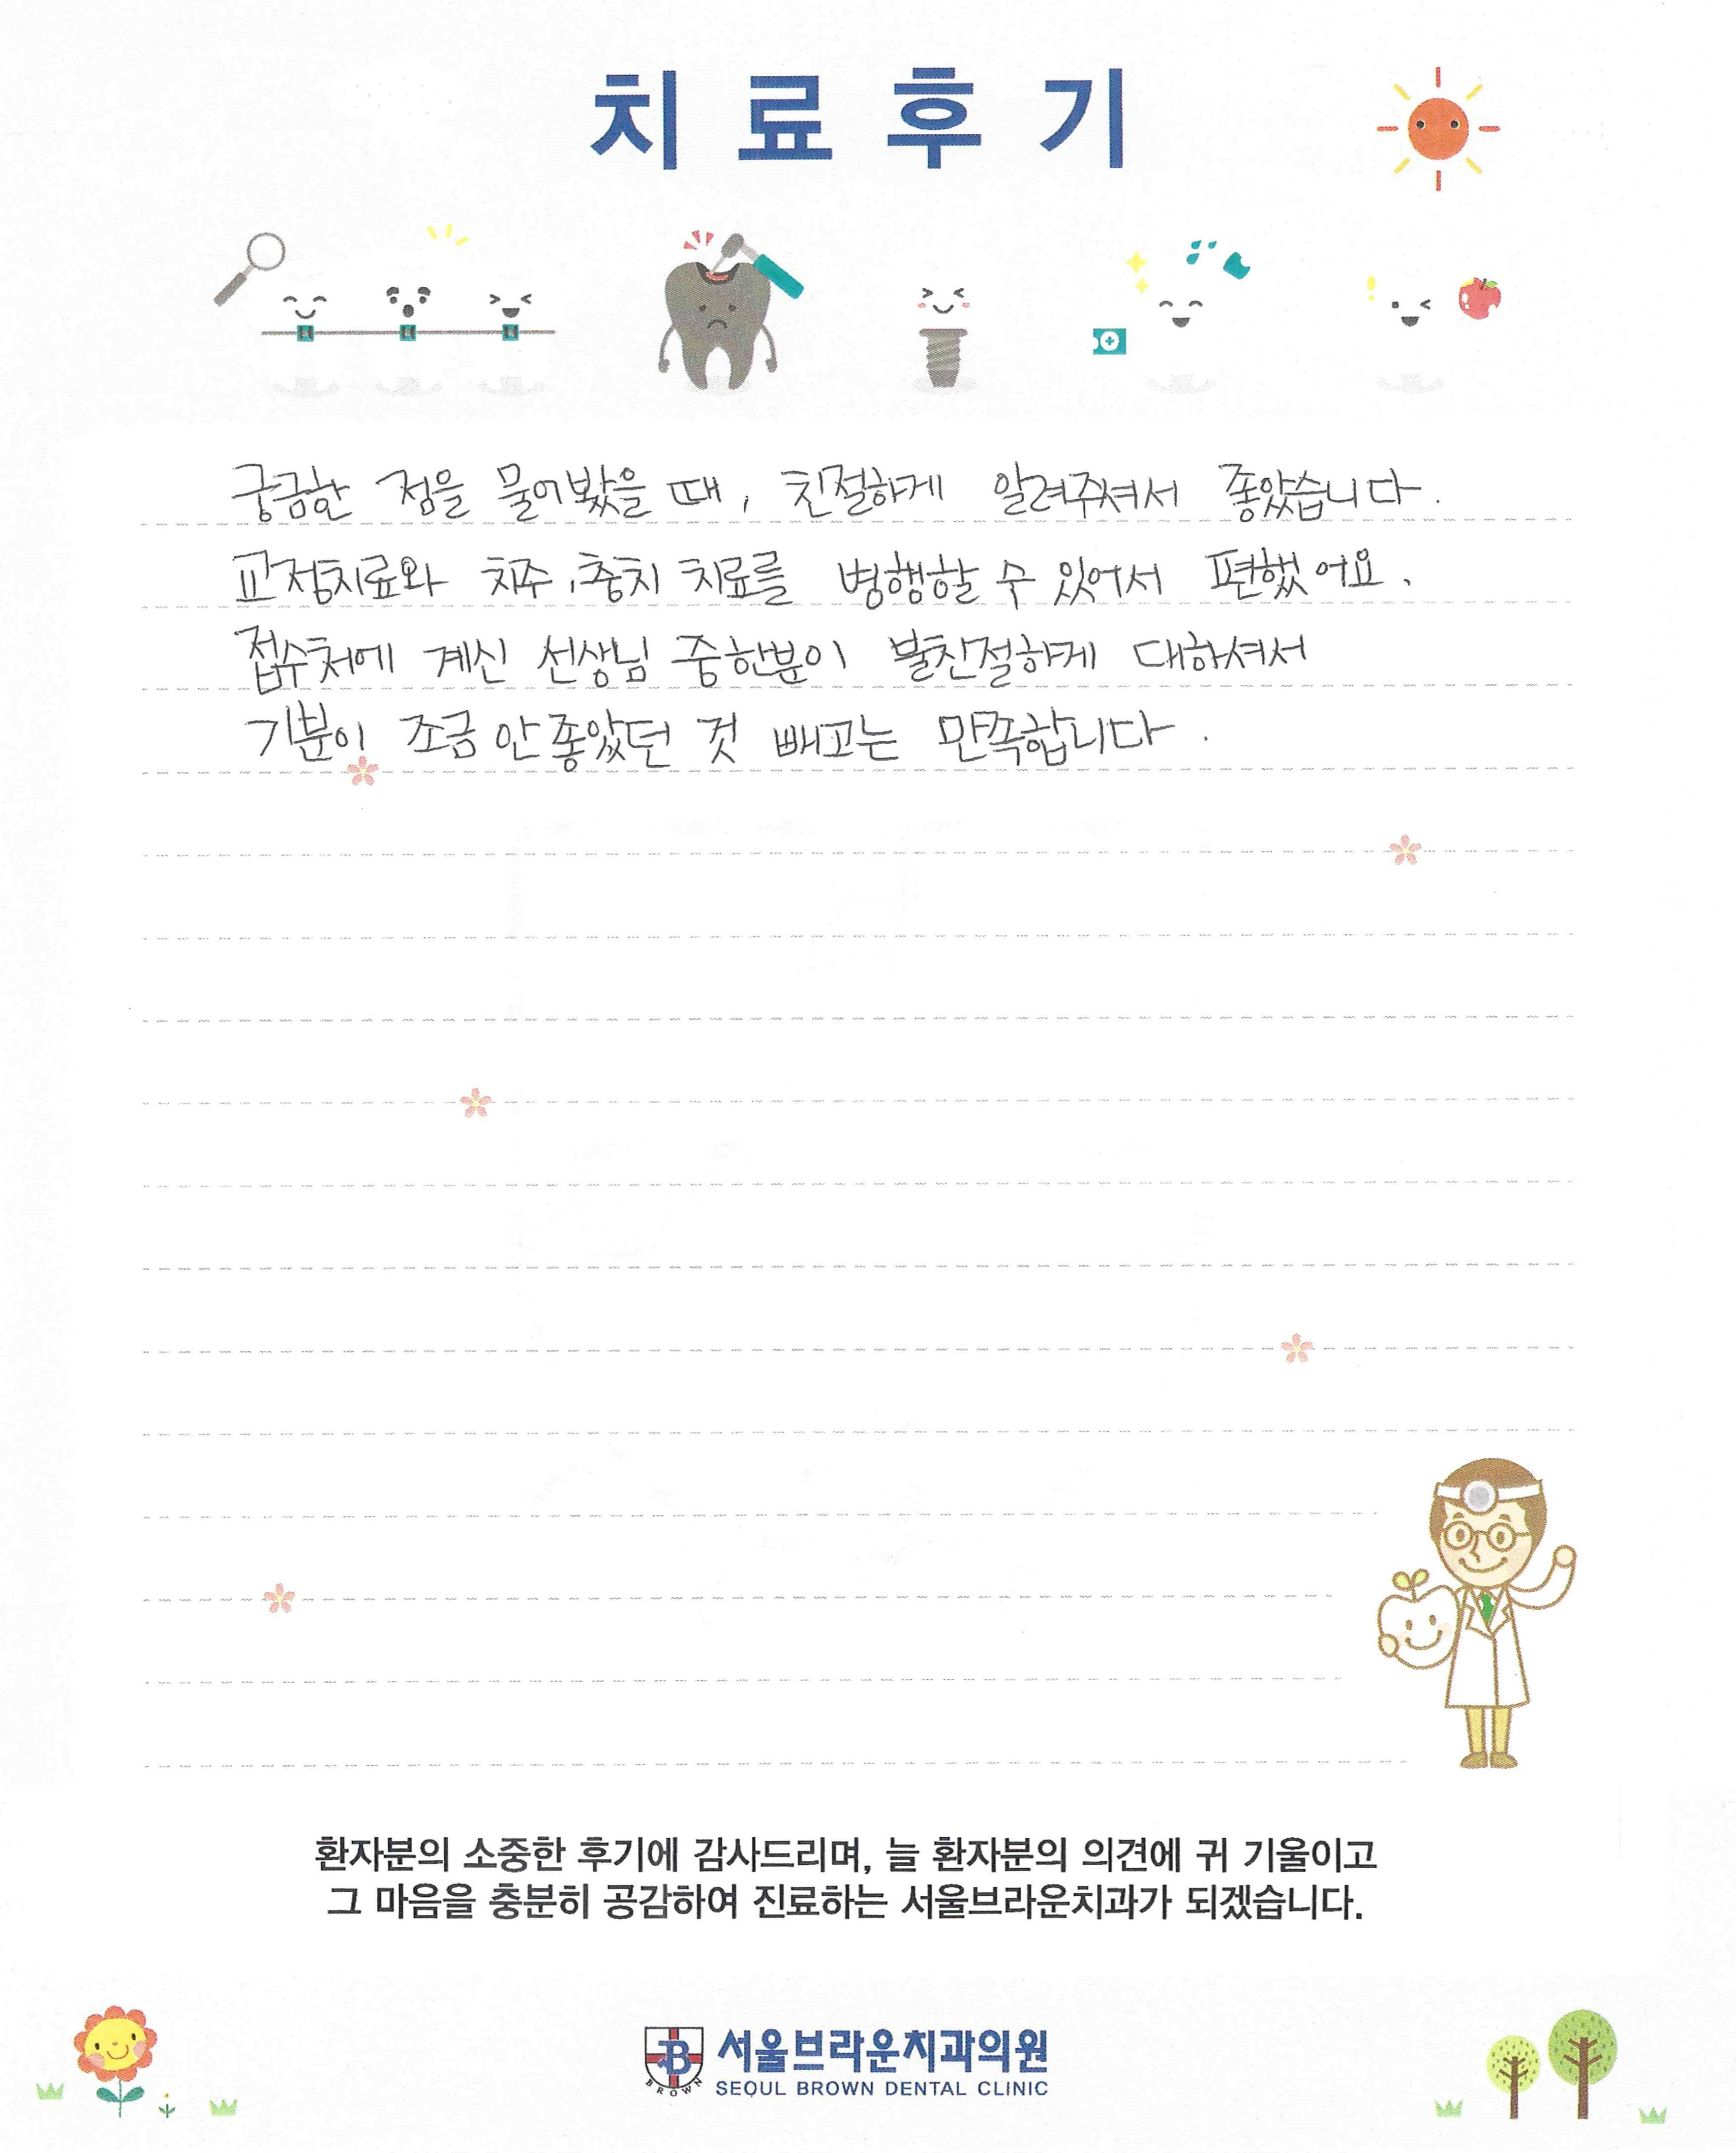 치료후기
궁금한 점을 물어봤을 때, 친절하게 알려주셔서 좋았습니다.
교정치료와 치주, 충치 치료를 병행할 수 있어서 편했어요.
접수처에 계신 선상님 중 한분이 불친절하게 대하셔서
기분이 조금 안 좋았던 것 빼고는 만족합니다.
환자분의 소중한 후기에 감사드리며, 늘 환자분의 의견에 귀 기울이고
그 마음을 충분히 공감하여 진료하는 서울브라운치과가 되겠습니다.
B
BROWN
서울브라운치과의원
SEOUL BROWN DENTAL CLINIC